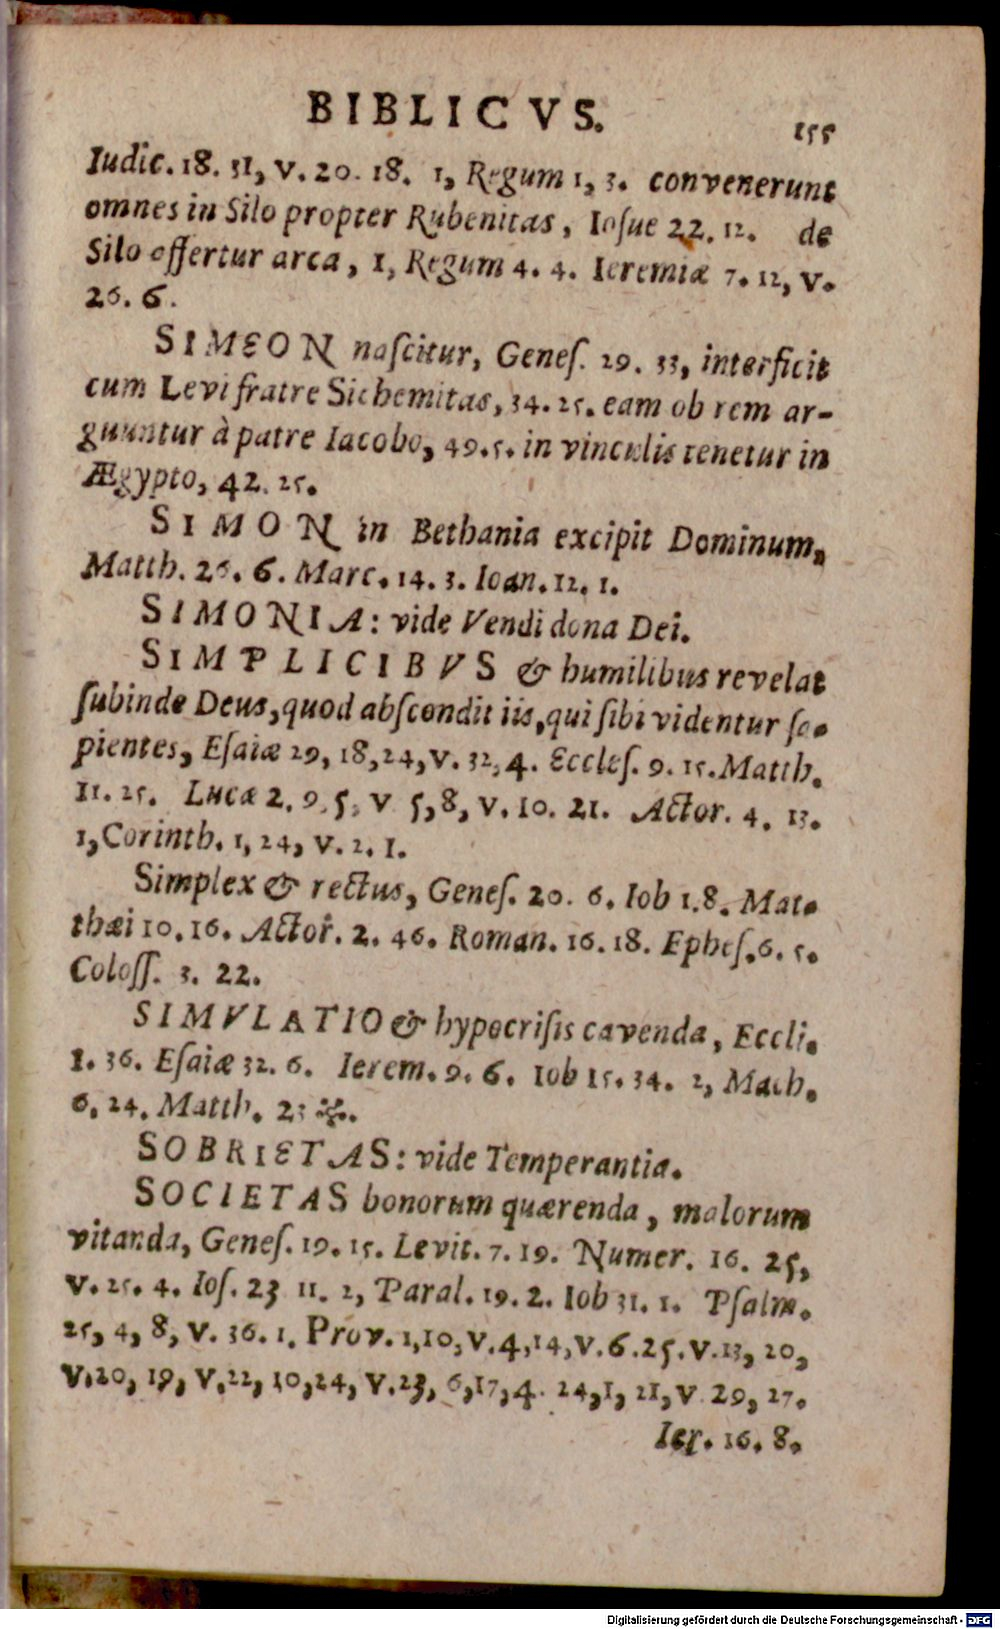 BIBLICVS. 155
Iudic. 18. 31, v. 20. 18. 1, Regum 1, 3. convenerunt
omnes in Silo propter Rubenitas, Iosue 22. 12. de
Silo offertur arca, 1, Regum 4. 4. Ieremiæ 7. 12, v.
26. 6.
SIMEON nascitur, Genes. 29. 33, interficit
cum Levi fratre Sichemitas, 34. 25. eam ob rem ar-
guuntur à patre Iacobo, 49. 5. in vinculis tenetur in
Ægypto, 42. 25.
SIMON in Bethania excipit Dominum,
Matth. 26. 6. Marc. 14. 3. Ioan. 12. 1.
SIMONIA: vide Vendi dona Dei.
SIMPLICIBVS & humilibus revelat
subinde Deus, quod abscondit iis, qui sibi videntur sa-
pientes, Esaiæ 29, 18, 24, v. 32, 4. Eccles. 9. 15. Matth.
11. 25. Lucæ 2. 9. 5, v 5, 8, v. 10. 21. Actor. 4. 13.
1, Corinth. 1, 24, v. 2. 1.
Simplex & rectus, Genes. 20. 6. Iob 1. 8. Mat-
thæi 10. 16. Actor. 2. 46. Roman. 16. 18. Ephes. 6. 5.
Coloss. 3. 22.
SIMVLATIO & hypocrisis cavenda, Eccli.
1. 36. Esaiæ 32. 6. Ierem. 9. 6. Iob 15. 34. 2, Mach.
6. 24. Matth. 23 *.
SOBRIETAS: vide Temperantia.
SOCIETAS bonorum quærenda, malorum
vitanda, Genes. 19. 15. Levit. 7. 19. Numer. 16. 25,
v. 25. 4. Ios. 23 11. 2, Paral. 19. 2. Iob 31. 1. Psalm.
25, 4, 8, v. 36. 1. Prov. 1, 10, v. 4, 14, v. 6. 25. v. 13, 20,
v. 20, 19, v. 22, 10, 24, v. 23, 6, 17, 4. 24, 1, 21, v 29, 27.
Ier. 16. 8.
Digitalisierung gefördert durch die Deutsche Forschungsgemeinschaft - DFG